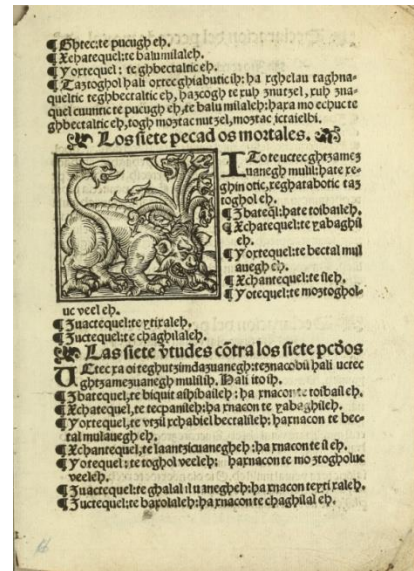 ¶ Ghtec: te pucugh eh.
¶ Xchatequel: te balumilaleh.
¶ Yoxtequel: te ghbectaltic eh.
¶ Taztoghol hali oxtec ghiabutic ih: ha xghelau taghna-
queltic teghbectaltic eh, hazcogh te xuh ꜫnutzel, xuh ꜫna-
quel cuuntic te pucugh eh, te balu milaleh: haxa mo echuc te
ghbectaltic eh, togh moztac nutzel, moztac ictaielbi.
Los siete pecad os mortales.
I To te uctec ghtzamez
uanegh mulil: hate xe-
ghinotic, xeghatabotic taz
toghol eh.
¶ ꜫbateql: hate toibaileh.
¶ Xchatequel: te yabaghil
eh.
¶ Yoxtequel: te bectal mul
auegh eh.
¶ Xchantequel: te ileh.
¶ Yotequel: te moztoghol-
uc veel eh.
¶ ꜫuactequel: te ytixaleh.
¶ ꜫuctequel: te chaghilaleh.
Las siete v̄tudes cōtra los siete pc̄dos
U Ctec xa oi teghutzimdazuanegh: teznacobil hali uctec
ghtzamezuanegh mulilih. Hali ito ih.
¶ ꜫbatequel, te biquit aihibaileh: ha xnaconte toibail eh.
¶ Xchatequel, te tecpanileh: ha xnacon te yabaghileh.
¶ Yoxtequel, te vtzil xchabiel bectalileh: haxnacon te bec-
tal mulauegh eh.
¶ Xchantequel, te laantzicuanegheh: ha xnacon te il eh.
¶ Yotequel: te toghol veeleh: haxnacon te mo ztogholuc
veeleh.
¶ ꜫuactequel: te ghalal il uanegheh: ha xnacon te ytixaleh.
¶ ꜫuctequel: te baxolaleh: ha xnacon te chaghilal eh.